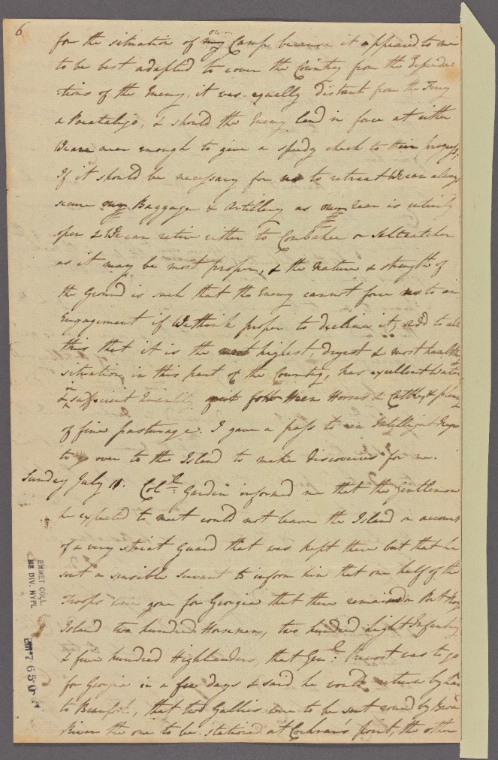 6
for the situation of my our Camp because it appeared to me
to be best adapted to cover the Country from the Depreda
tions of the Enemy, it was equally distant from the Ferry
& Pocotaligo, & should the Enemy land in force at either
We are near enough to give a speedy check to their progress,
If it should be necessary for us to retreat We can always
secure our Baggage & Artillery as our rear is intirely
open & We can retire either to Combahee or Saltcatcher
as it may be most proper, & the Nature & strength of
the Ground is such that the Enemy cannot force us to an
Engagement if We think proper to decline it, add to all
this that it is the highest dryest & most healthy
situation in this part of the Country, has excellent Water
in sufficient Quantity for Men Horses & Cattle, & plenty
of fine pasturage. I gave a pass to an Intelligent Negro
to go over to the Island to make Discoveries for me.
Sunday July 11. Col.º Garden informed me that the Gentleman
he expected to meet could not leave the Island on account
of a very strict Guard that was kept there but that he
sent a sensible Servant to inform him that one half of the
Troops were gone for Georgia that there remained on Port Royal
Island two hundred Horsemen, two hundred light Infantry
& five hundred Highlanders, that Gen.l Prevost was to go
for Georgia in a few days & said he would return by
to Beaufort, that two Gallies were to be sent round by
River the one to be stationed at Cochrans point, the other
EMMET COLL.
MS DIV. NYPL
EM 7650